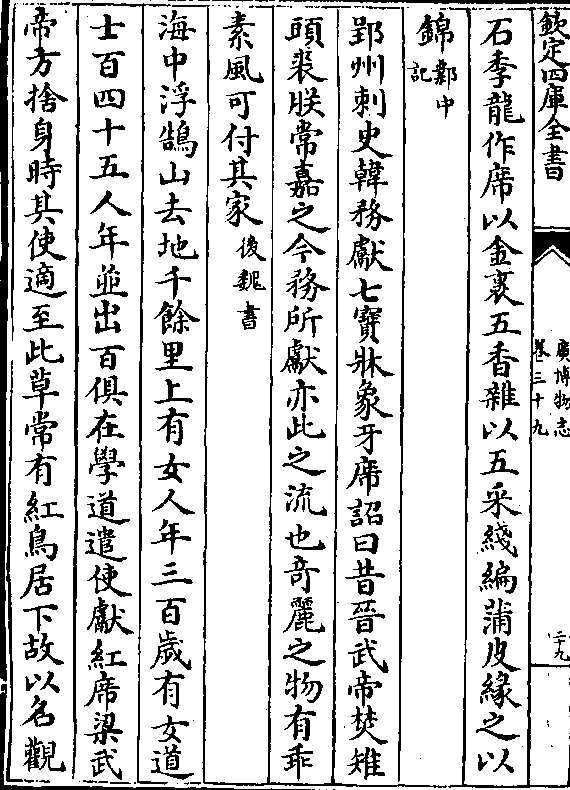 欽定四庫全書
廣博物志
卷三十九
二十九
石季龍作席以金裹五香雜以五采綫編蒲皮緣之以
錦鄴中記
郢州刺史韓務獻七寳牀象牙席詔曰昔晉武帝焚雉
頭裘朕常嘉之今務所獻亦此之流也奇麗之物有乖
素風可付其家後魏書
海中浮鵠山去地千餘里上有女人年三百歲有女道
士百四十五人年並出百俱在學道遣使獻紅席梁武
帝方捨身時其使適至此草常有紅鳥居下故以名觀